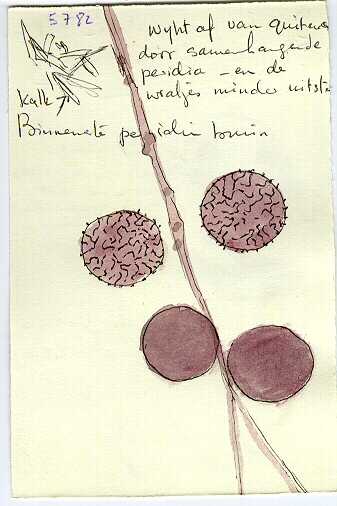 5782
wykt af van
door samenhangende
peridia - en de
wratjes minder uitst
Kalk
Binnenste peridium bruin